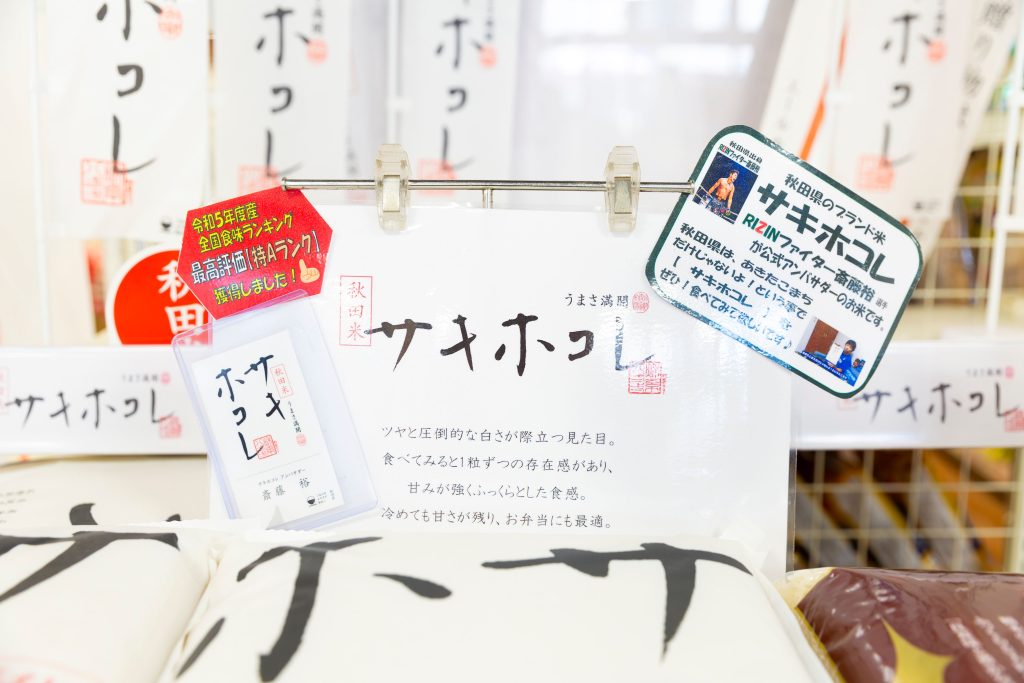 ホコレ
ホコレ
ホコレ
ホコレ
贈り物
令和5年度産
全国食味ランキング
最高評価「特Aランク」
獲得しました!
秋田
秋田県出身
RIZINファイター斎藤裕
秋田県のブランド米
サキホコレ
RIZINファイター斎藤裕選手
が公式アンバサダーのお米です。
秋田県は、あきたこまち
だけじゃないよ!という事で
「サキホコレ」を
ぜひ!食べてみて欲しいです♪
秋田米
うまさ満開
サキホコレ
ツヤと圧倒的な白さが際立つ見た目。
食べてみると1粒ずつの存在感があり、
甘みが強くふっくらとした食感。
冷めても甘さが残り、お弁当にも最適。
秋田米
サキ
ホコレ
うまさ満開
サキホコレ アンバサダー
斎藤 裕
うまさ満開
サキホコレ
うまさ満開
サキホコレ
サ
ホ